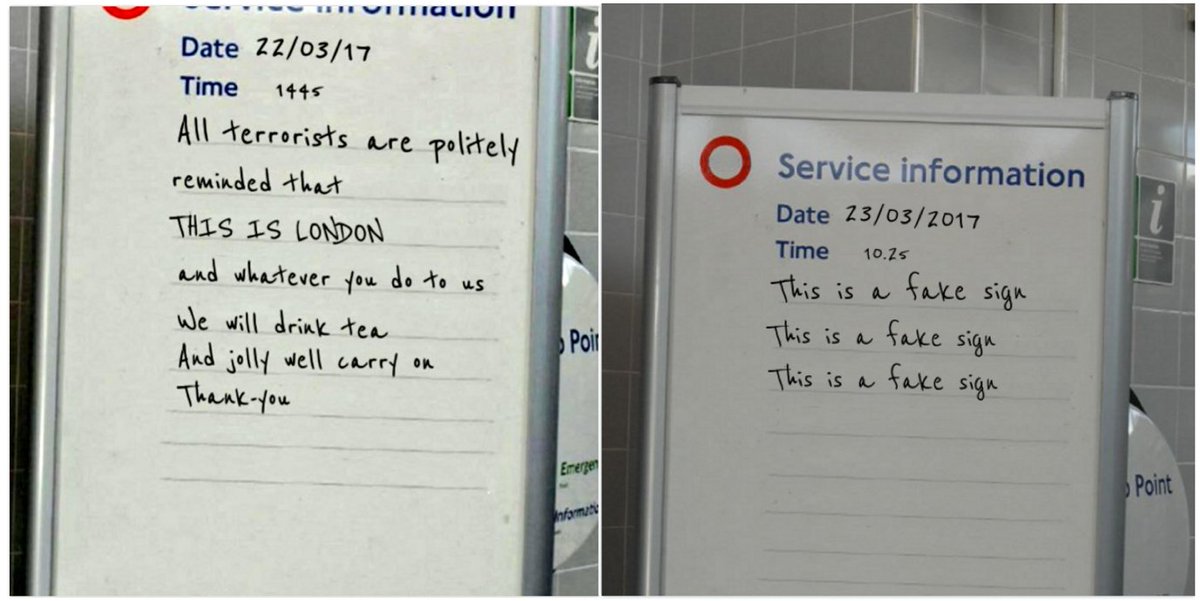 Service information
Date 22/03/17
Time 1445
All terrorists are politely
reminded that
THIS IS LONDON
and whatever you do to us
We will drink tea
And jolly well carry on
Thank-you
Service information
Date 23/03/2017
Time 10.25
This is a fake sign
This is a fake sign
This is a fake sign
Point